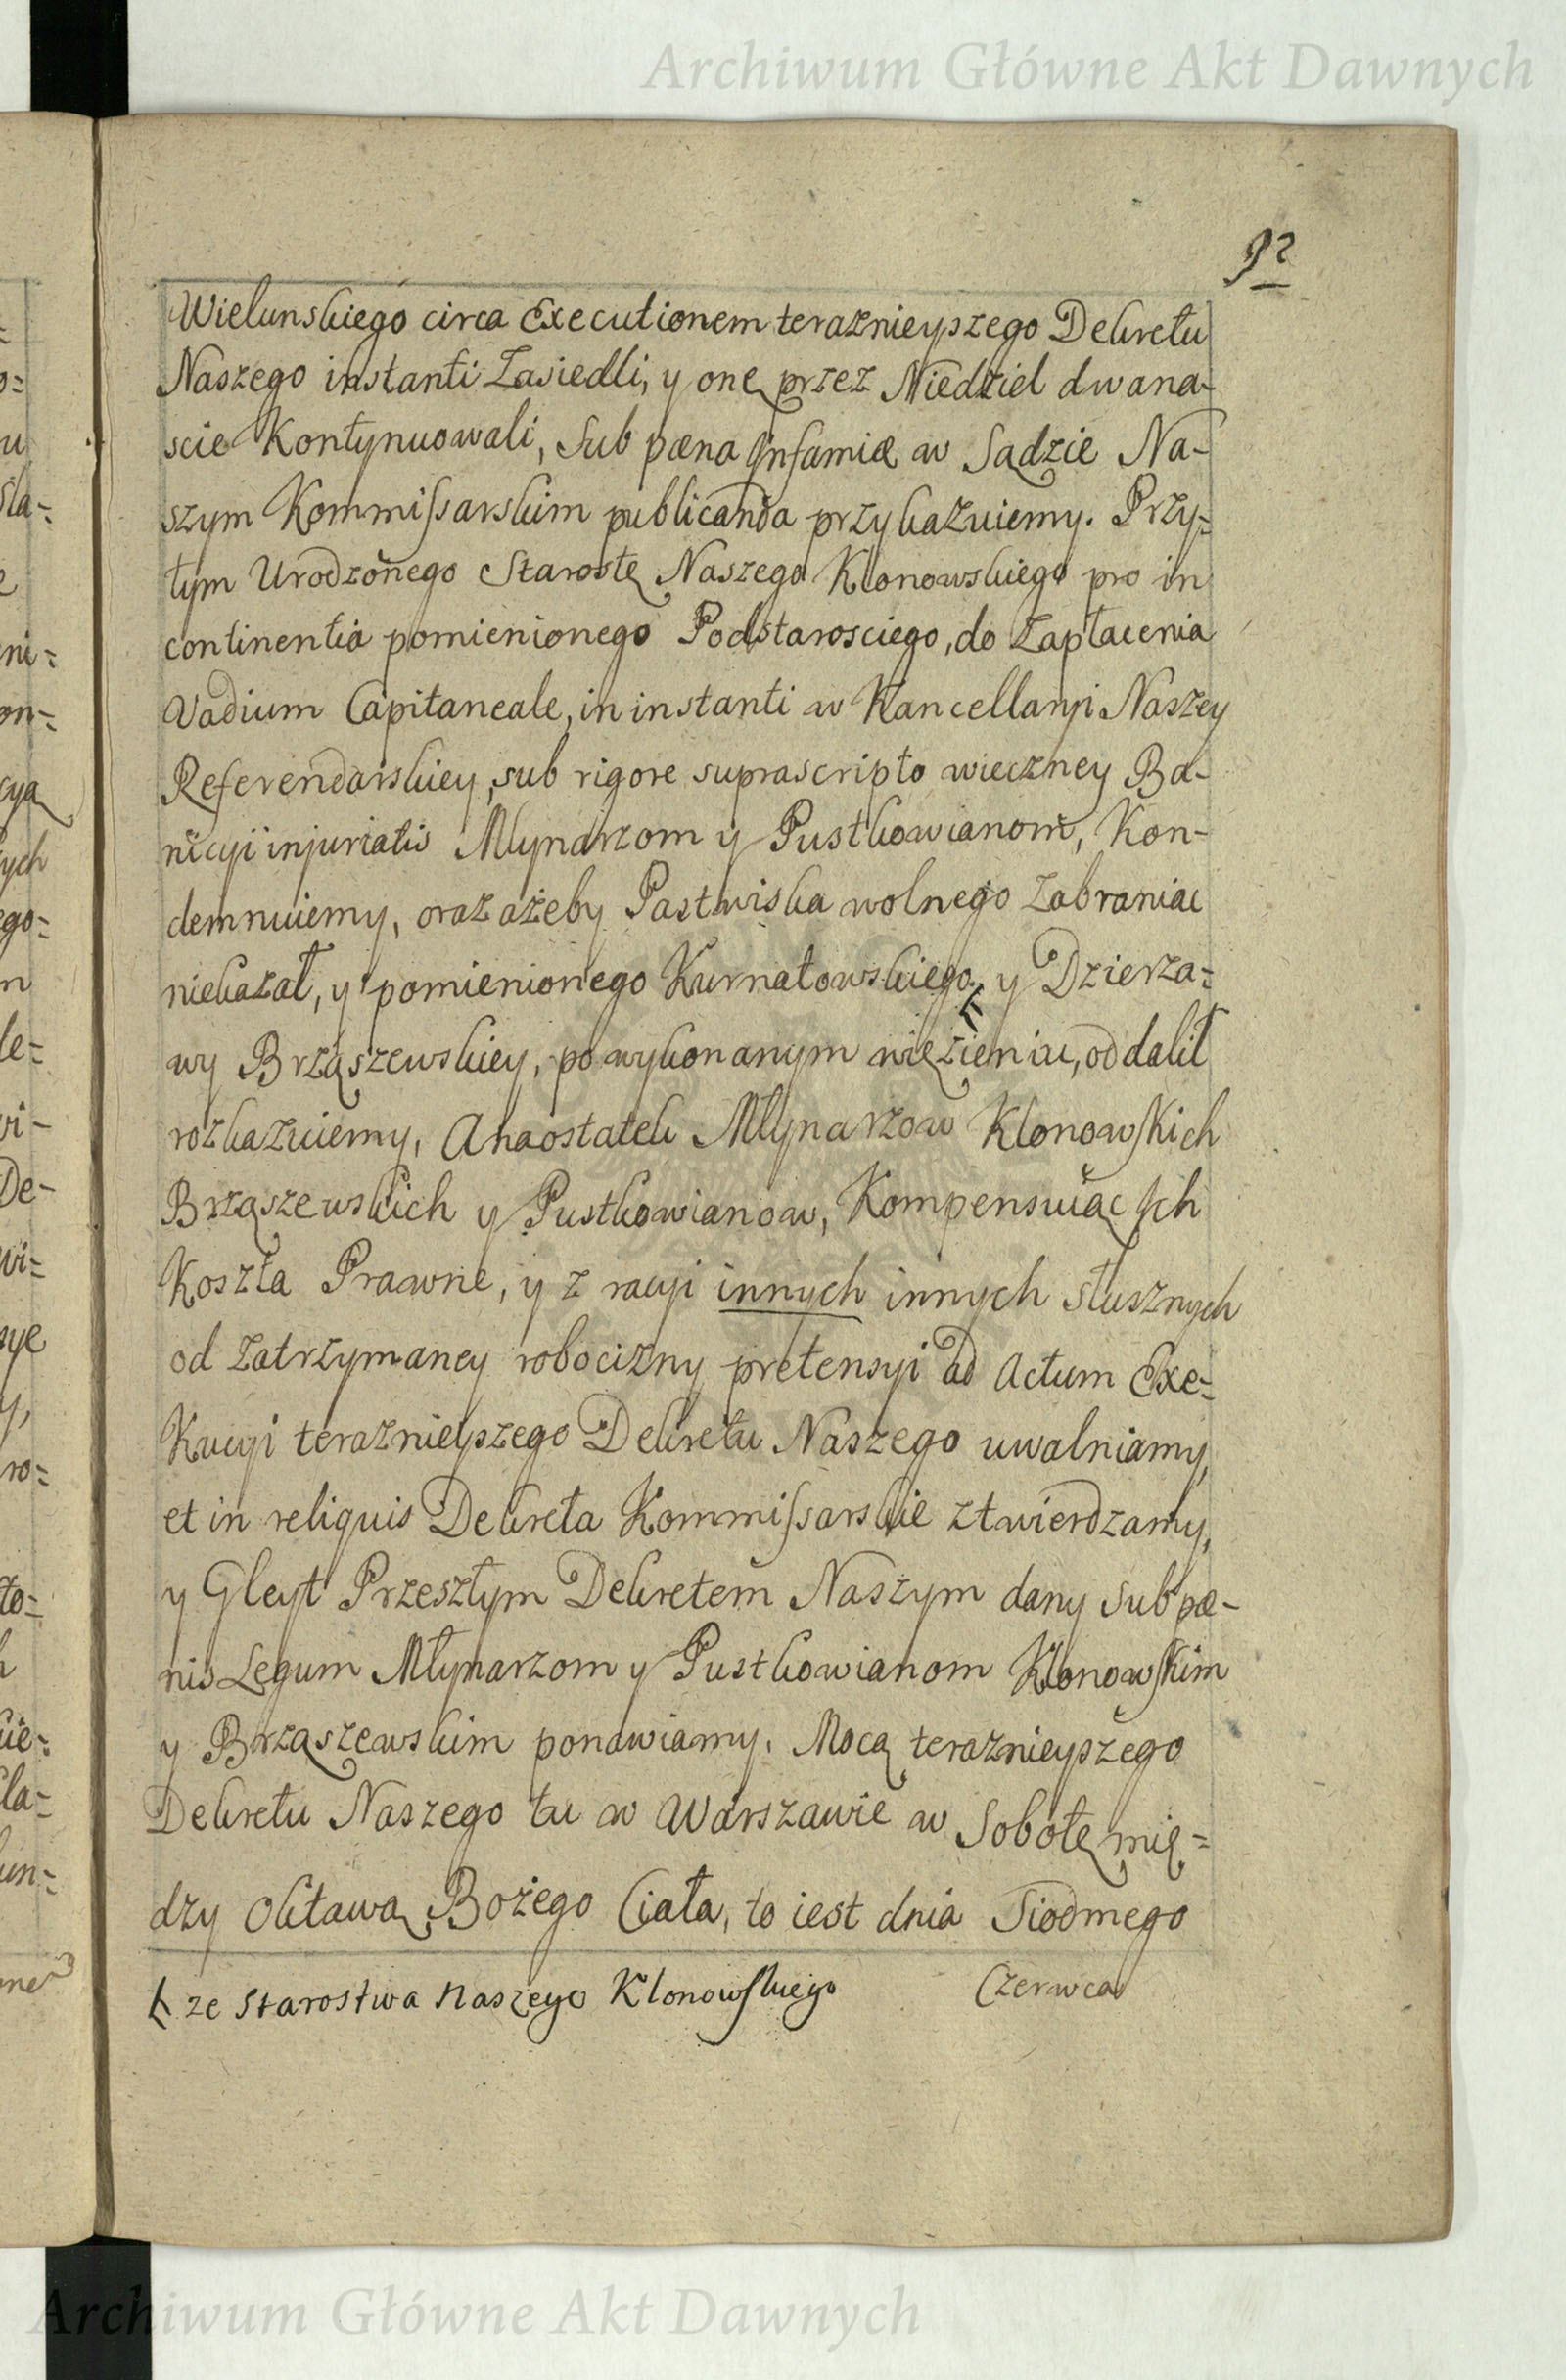 Archiwum Główne Akt Dawnych
92
Wielunskiego circa Executionem teraznieyszego Dekretu
Naszego instanti Zasiedli, y onę przez Niedziel dwana-
scie Kontynuowali, Sub pæna Infamiæ w Sądzie Na-
szym Kommissarskim publicanda przykazuiemy. Przy=
tym Urodzonego Starostę Naszego Klonowskiego pro in
continentia pomienionego Podstarosciego, do Zapłacenia
Vadium Capitaneale, in instanti w Kancellaryi Naszey
Referendarskiey, sub rigore suprascripto wieczney Ba-
nicyi injuriatis Młynarzom y Pustkowianom, Kon-
demnuiemy, oraz ażeby Pastwiska wolnego Zabraniac
niekazał, y pomienionego Kurnatowskiego, y Dzierza=
wy Brząszewskiey, po wykonanym więzieniu, oddalił
rozkazuiemy, Anaostatek Młynarzow Klonowskich
Brząszewskich y Pustkowianow, Kompensuiąc Ich
Koszta Prawne, y z racyi innych innych słusznych
od Zatrzymaney robocizny pretensyi ad Actum Exe=
Kucyi teraznieyszego Dekretu Naszego uwalniamy,
et in reliquis Dekreta Kommissarskie ztwierdzamy,
y Gleyt Przeszłym Dekretem Naszym dany sub pæ-
nis Legum Młynarzom y Pustkowianom Klonowskim
y Brząszewskim ponawiamy. Mocą teraznieyszego
Dekretu Naszego tu w Warszawie w Sobotę mię=
dzy Oktawą Bożego Ciała, to iest dnia Siodmego
Czerwca
ze Starostwa Naszego Klonowskiego
Archiwum Główne Akt Dawnych